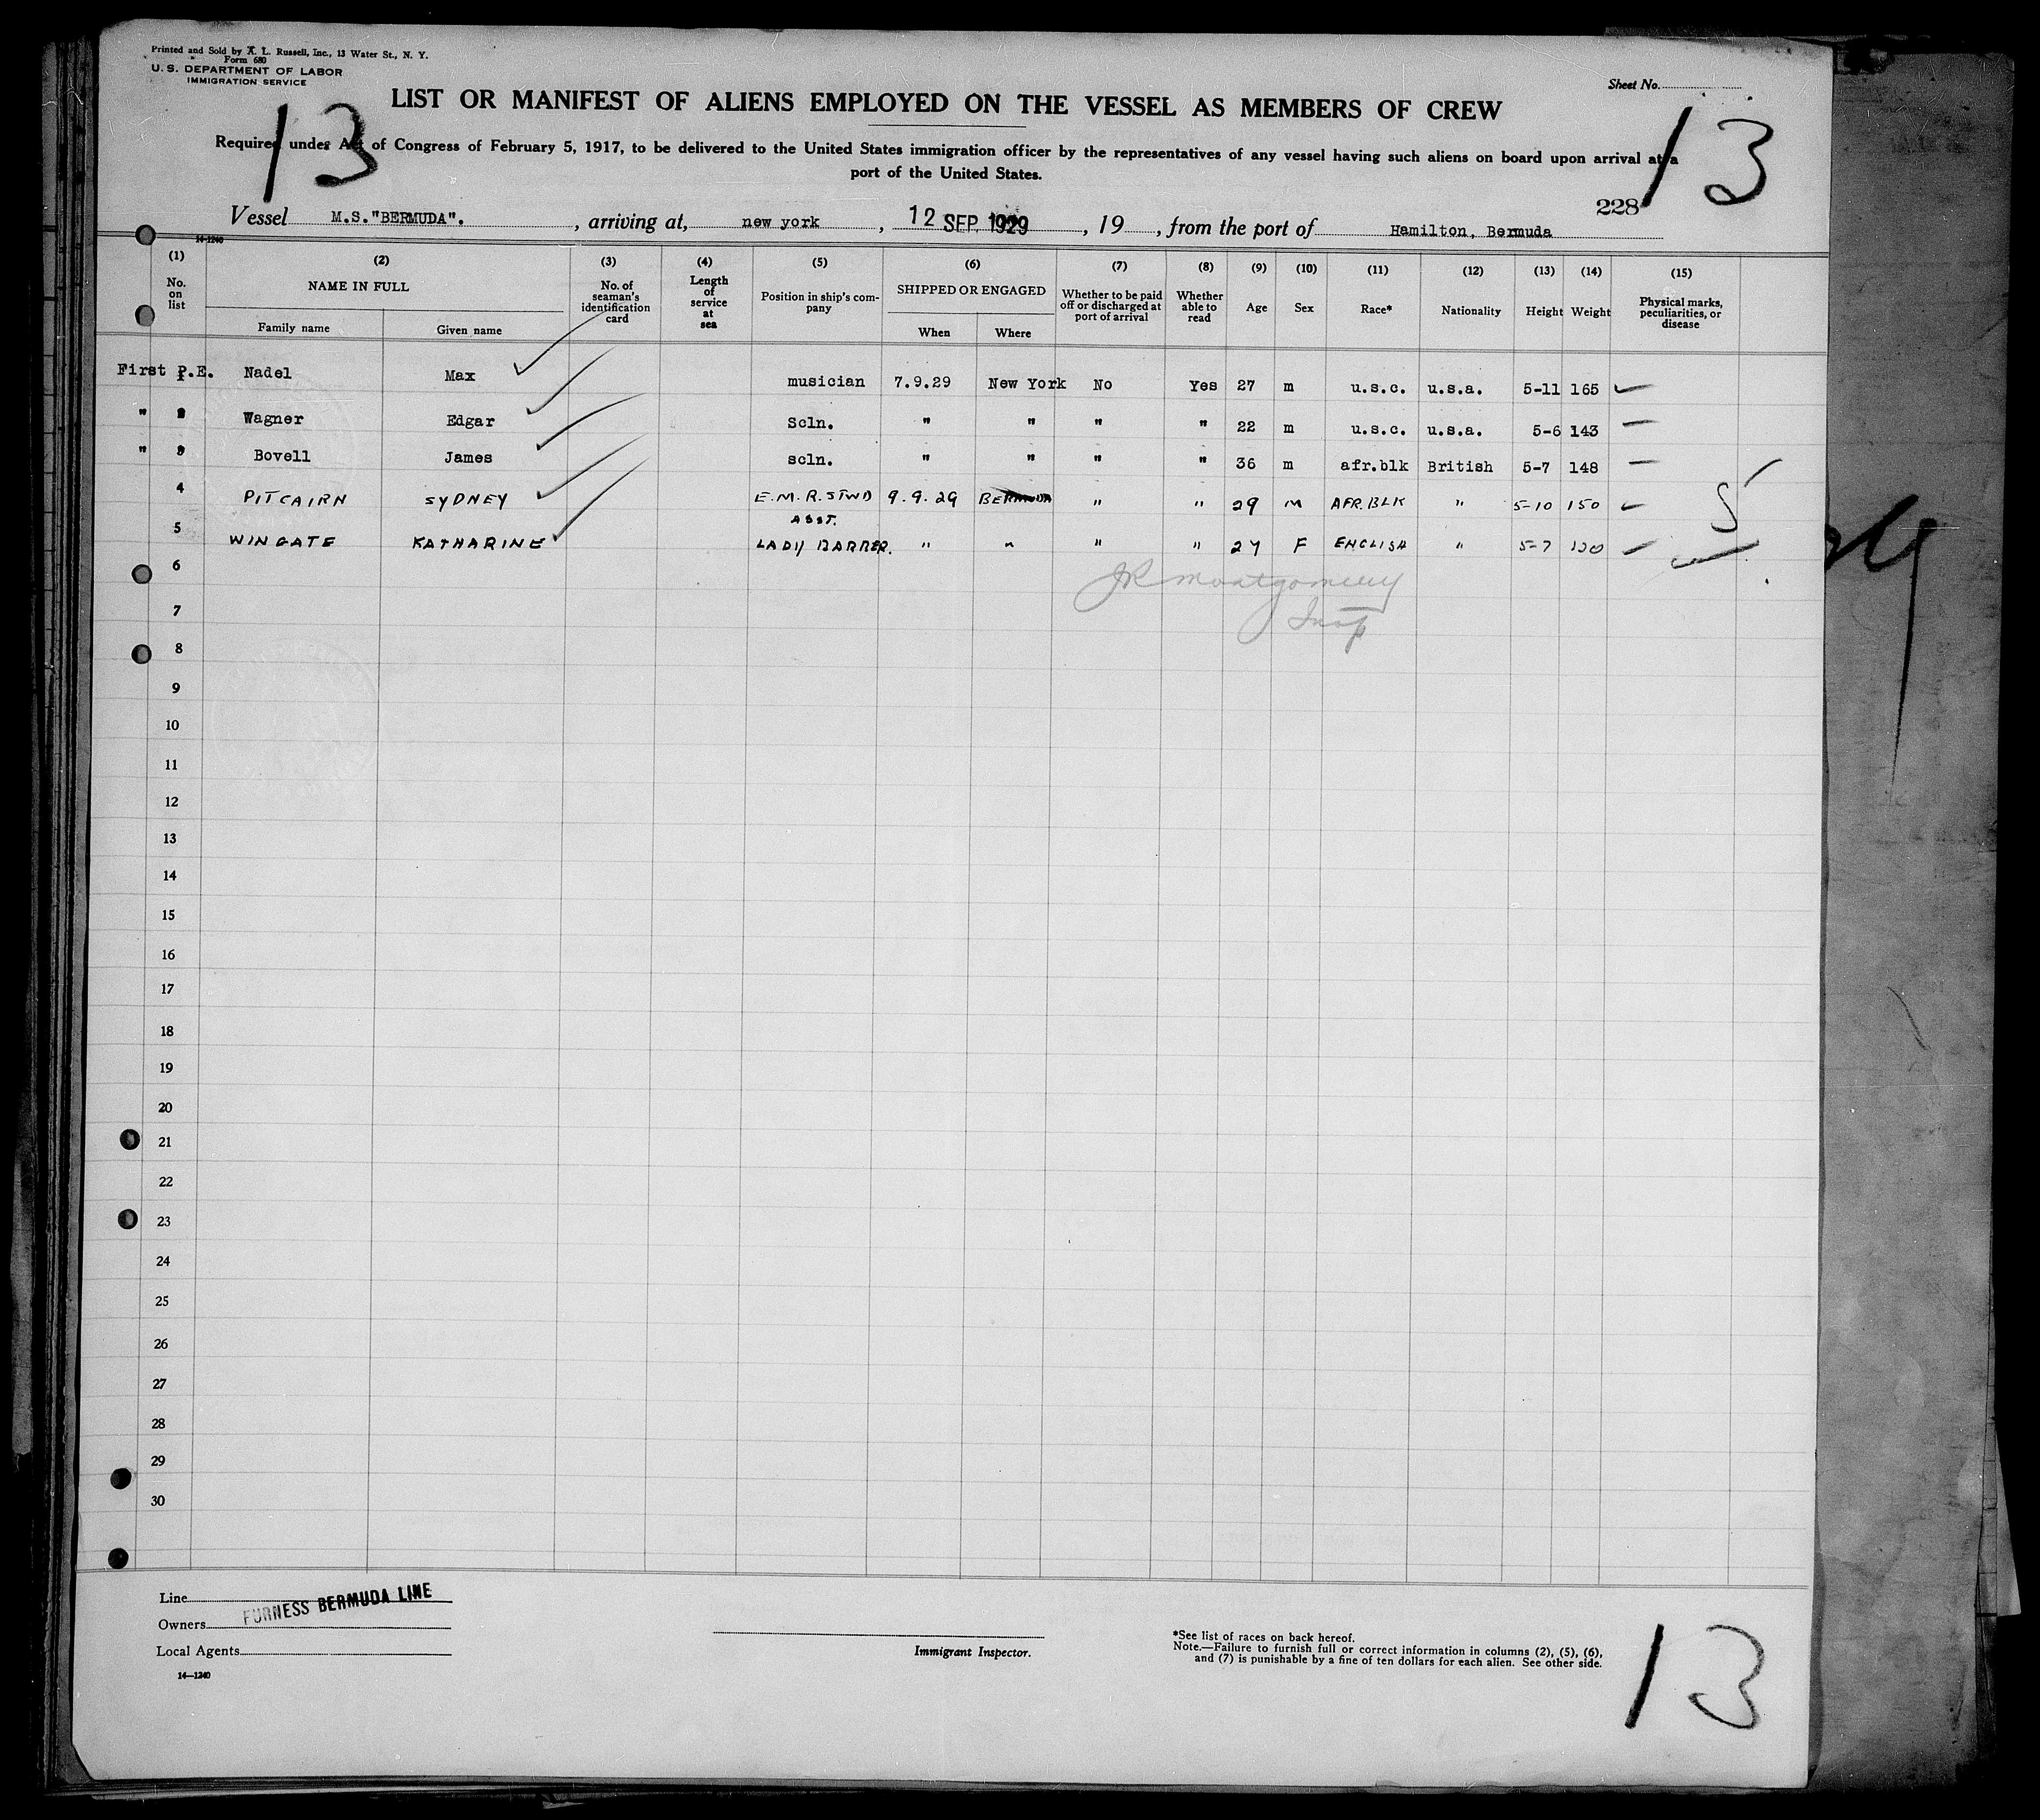 Printed and Sold by A. L. Russell, Inc., 13 Water St., N. Y.
Form 680
U. S. DEPARTMENT OF LABOR
IMMIGRATION SERVICE
Sheet No.
LIST OR MANIFEST OF ALIENS EMPLOYED ON THE VESSEL AS MEMBERS OF CREW
13 13
Required under Act of Congress of February 5, 1917, to be delivered to the United States immigration officer by the representatives of any vessel having such aliens on board upon arrival at a
port of the United States.
228
Vessel M.S."BERMUDA". , arriving at, new york , 12 SEP 1929 , 19 , from the port of Hamilton, Bermuda
14-1240
(1) (2) (3) (4) (5) (6) (7) (8) (9) (10) (11) (12) (13) (14) (15)
No. on list NAME IN FULL No. of seaman's identification card Length of service at sea Position in ship's company SHIPPED OR ENGAGED Whether to be paid off or discharged at port of arrival Whether able to read Age Sex Race* Nationality Height Weight Physical marks, peculiarities, or disease
Family name Given name When Where
First P.E. Nadel Max musician 7.9.29 New York No Yes 27 m u.s.c. u.s.a. 5-11 165
" " Wagner Edgar Scln. " " " " 22 m u.s.c. u.s.a. 5-6 143
" " Bovell James scln. " " " " 36 m afr.blk British 5-7 148
4 PITCAIRN SYDNEY E.M.R.STWD 9.9.29 BERMUDA " " 29 M AFR.BLK " 5-10 150
5 WINGATE KATHARINE ASST. LADY BARBER. " " " " 27 F ENGLISH " 5-7 120
5
6
JR Montgomery
7
Insp
8
9
10
11
12
13
14
15
16
17
18
19
20
21
22
23
24
25
26
27
28
29
30
Line
FURNESS BERMUDA LINE
Owners
Local Agents
14—1240
Immigrant Inspector.
*See list of races on back hereof.
Note.—Failure to furnish full or correct information in columns (2), (5), (6),
and (7) is punishable by a fine of ten dollars for each alien. See other side.
13